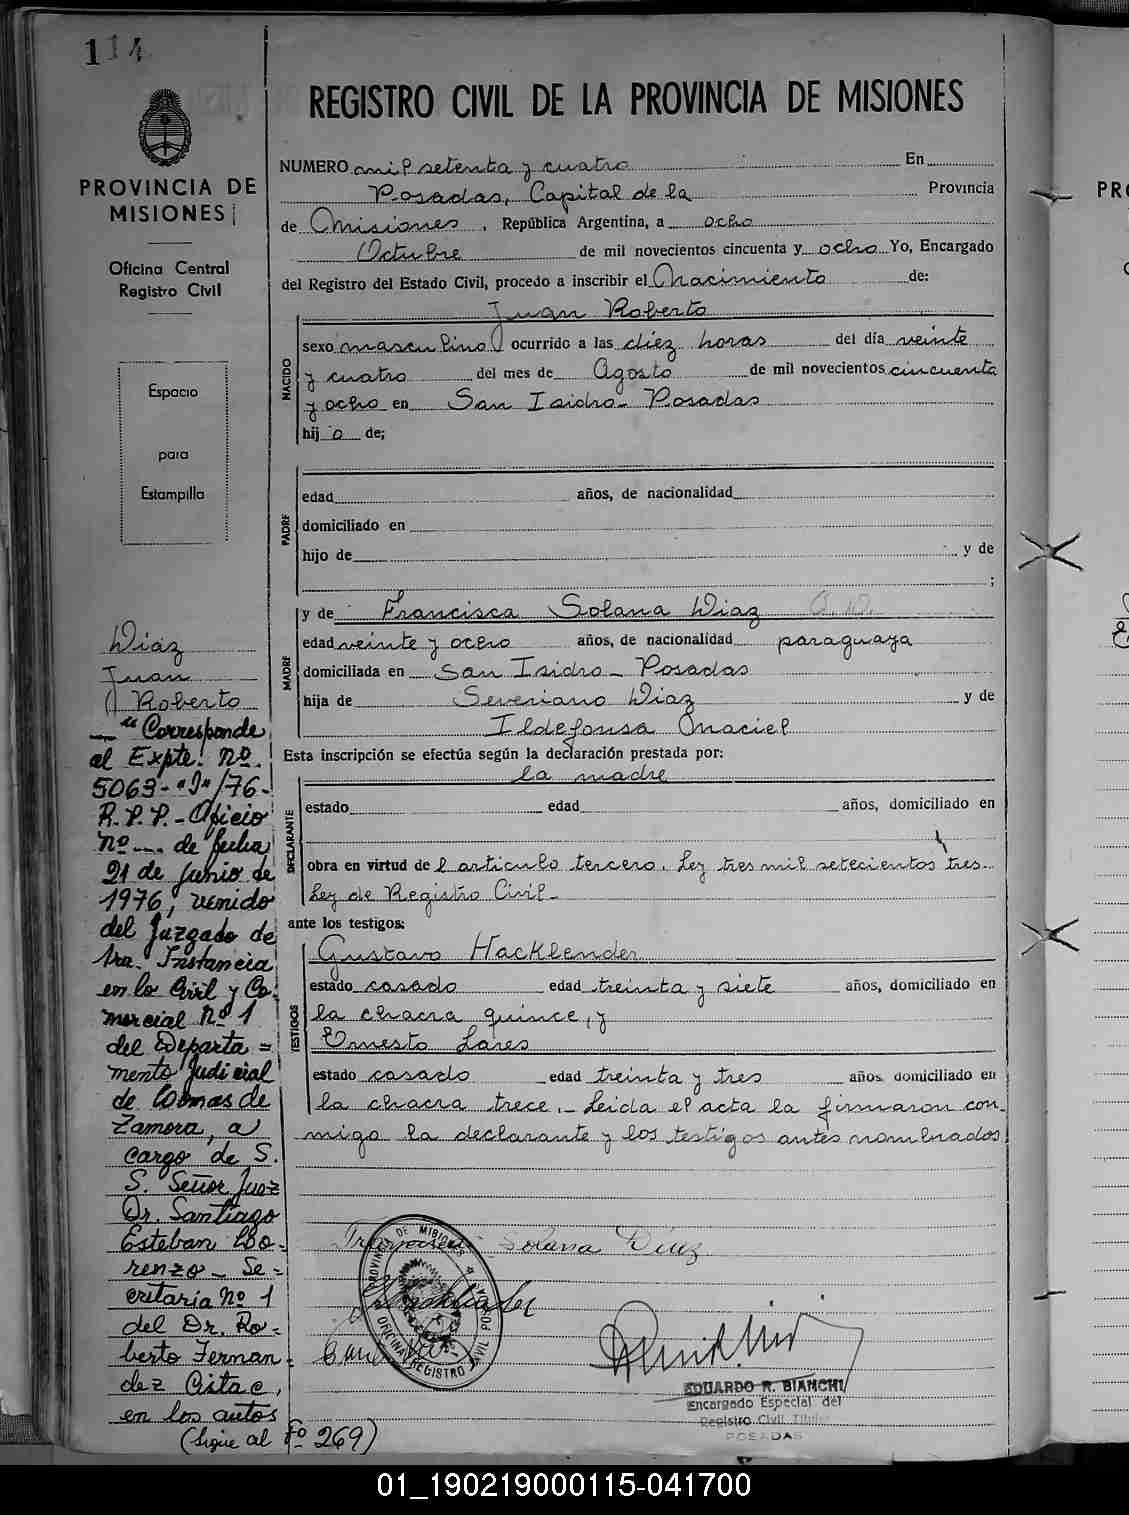 114
REGISTRO CIVIL DE LA PROVINCIA DE MISIONES
PROVINCIA DE
MISIONES
Oficina Central
Registro Civil
Espacio
para
Estampilla
NUMERO mil setenta y cuatro En
Posadas, Capital de la Provincia
de Misiones, República Argentina, a ocho
Octubre de mil novecientos cincuenta y ocho Yo, Encargado
del Registro del Estado Civil, procedo a inscribir el Nacimiento de:
Juan Roberto
NACIDO
sexo masculino ocurrido a las diez horas del día veinte
y cuatro del mes de Agosto de mil novecientos cincuenta
y ocho en San Isidro - Posadas
hijo de;
PADRE
edad años, de nacionalidad
domiciliado en
hijo de y de
;
MADRE
y de Francisca Solana Diaz
edad veinte y ocho años, de nacionalidad paraguaya
domiciliada en San Isidro - Posadas
hija de Severiano Diaz y de
Ildefonsa Maciel
Esta inscripción se efectúa según la declaración prestada por:
la madre
DECLARANTE
estado edad años, domiciliado en
obra en virtud del articulo tercero. Ley tres mil setecientos tres
Ley de Registro Civil-
ante los testigos:
TESTIGOS
Gustavo Hacklender
estado casado edad treinta y siete años, domiciliado en
la chacra quince, y
Ernesto Lares
estado casado edad treinta y tres años, domiciliado en
la chacra trece. - Leida el acta la firmaron con-
migo la declarante y los testigos antes nombrados
Solana Diaz
PROVINCIA DE MISIONES
OFICINA REGISTRO CIVIL POSADAS
EDUARDO R. BIANCHI
Encargado Especial del
Registro Civil Titular
POSADAS
Diaz
Juan
Roberto
"Corresponde
al Expte. Nº
5063-"J"/76-
R.P.P.- Oficio
Nº --- de fecha
21 de Junio de
1976, venido
del Juzgado de
1ra. Instancia
en lo Civil y Co-
mercial Nº 1
del Departa=
mento Judicial
de Lomas de
Zamora, a
cargo de S.
S. Señor Juez
Dr. Santiago
Esteban Lo-
renzo - Se=
cretaria Nº 1
del Dr. Ro=
berto Fernan=
dez
en los autos
(Sigue al Fº 269)
01_190219000115-041700